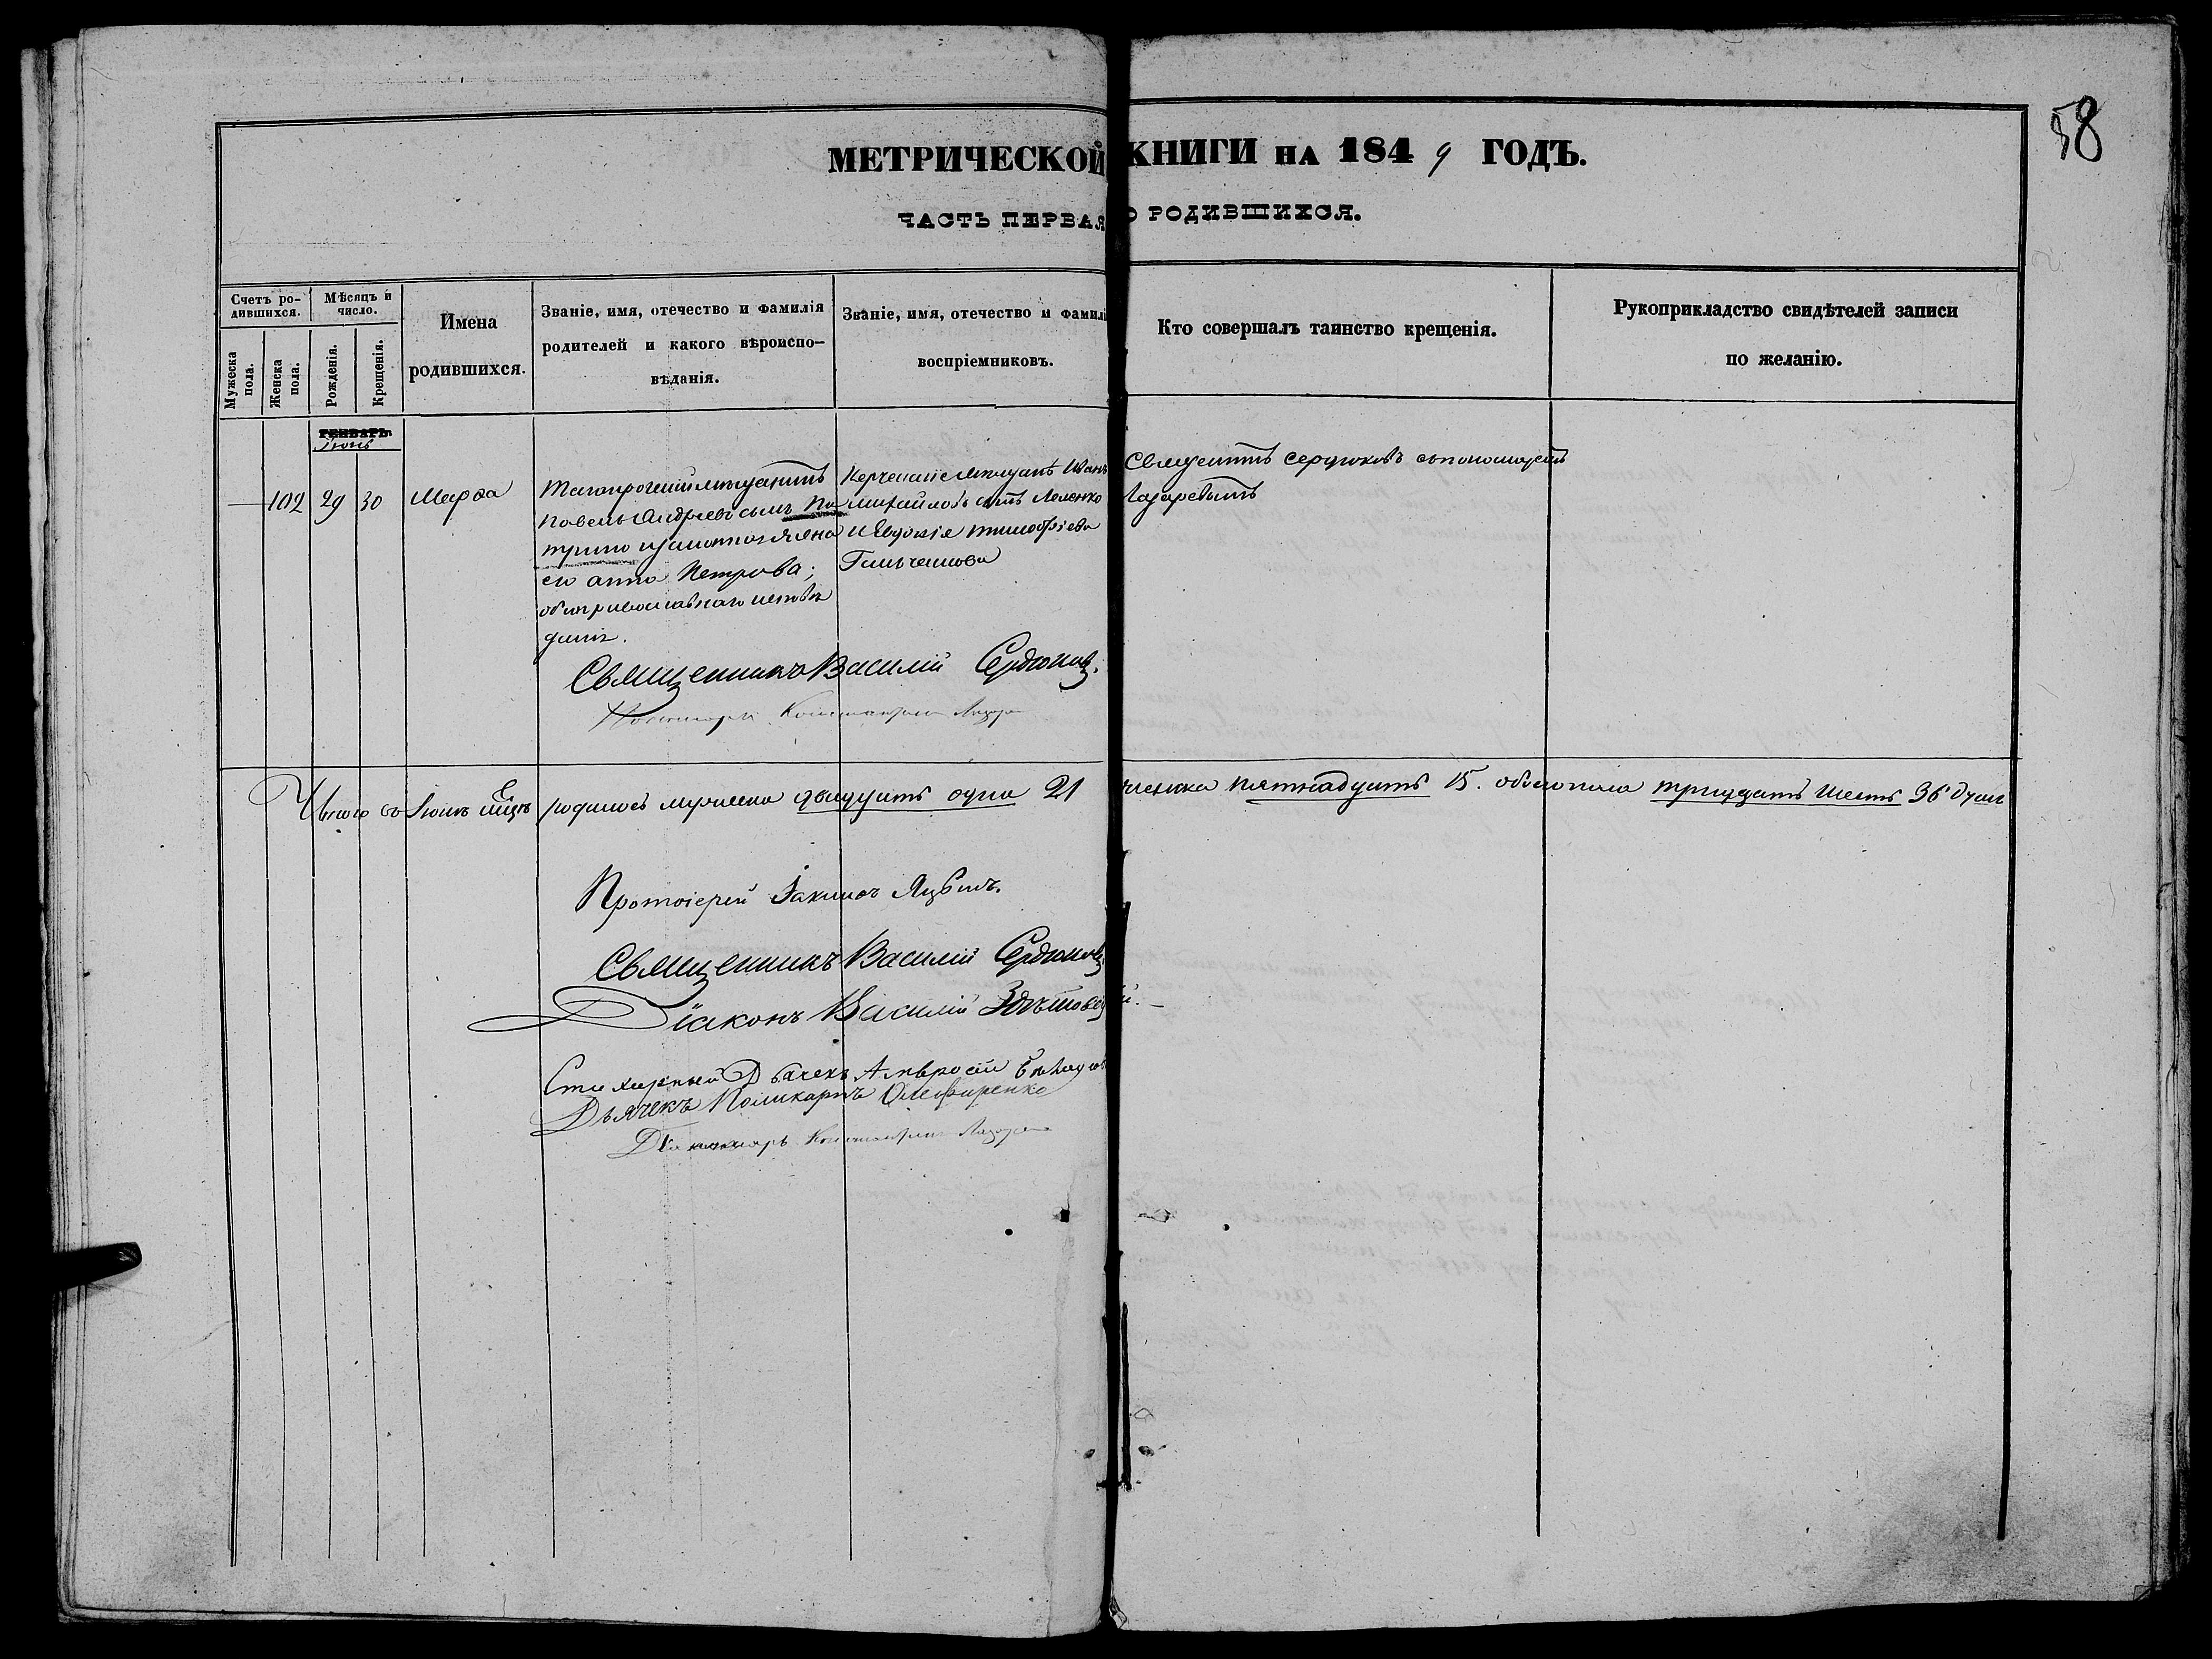 58
МЕТРИЧЕСКОЙ КНИГИ НА 1849 ГОДЪ.
ЧАСТЬ ПЕРВАЯ О РОДИВШИХСЯ.
Счетъ родившихся.
Мужеска пола.
Женска пола.
Мѣсяцъ и число.
Рожденія.
Крещенія.
Имена родившихся.
Званіе, имя, отечество и фамилія
родителей и какого вѣроиспо-
вѣданія.
Званіе, имя, отечество и фамилі
воспріемниковъ.
Кто совершалъ таинство крещенія.
Рукоприкладство свидѣтелей записи
по желанію.
ГЕНВАРЬ
Іюнь
102 29 30 Марѳа
Таганрогскій мѣщанинъ
Павелъ Андреевъ сынъ
и законная жена
его Анна Петрова;
оба православнаго исповѣ
данія.
Керченскіе мѣщанъ Иванъ
Михайловъ сынъ
и Евдокія Тимофѣева
Священникъ Сердюковъ съ пономаремъ
Лазаревымъ
Священникъ Василій Сердюковъ.
Пономарь Константинъ Лазаре
Итого въ Іюнѣ мцѣ родилось мужеска двадцать одна 21 женска пятнадцать 15. обоего пола тридцать шесть 36 душъ
Протоіерей Іакимъ
Священникъ Василій Сердюковъ
Діаконъ Василій
Стихарный Дьячекъ Амвросій
Дьячекъ Поликарпъ Олефиренко
Пономарь Константинъ Лазаре